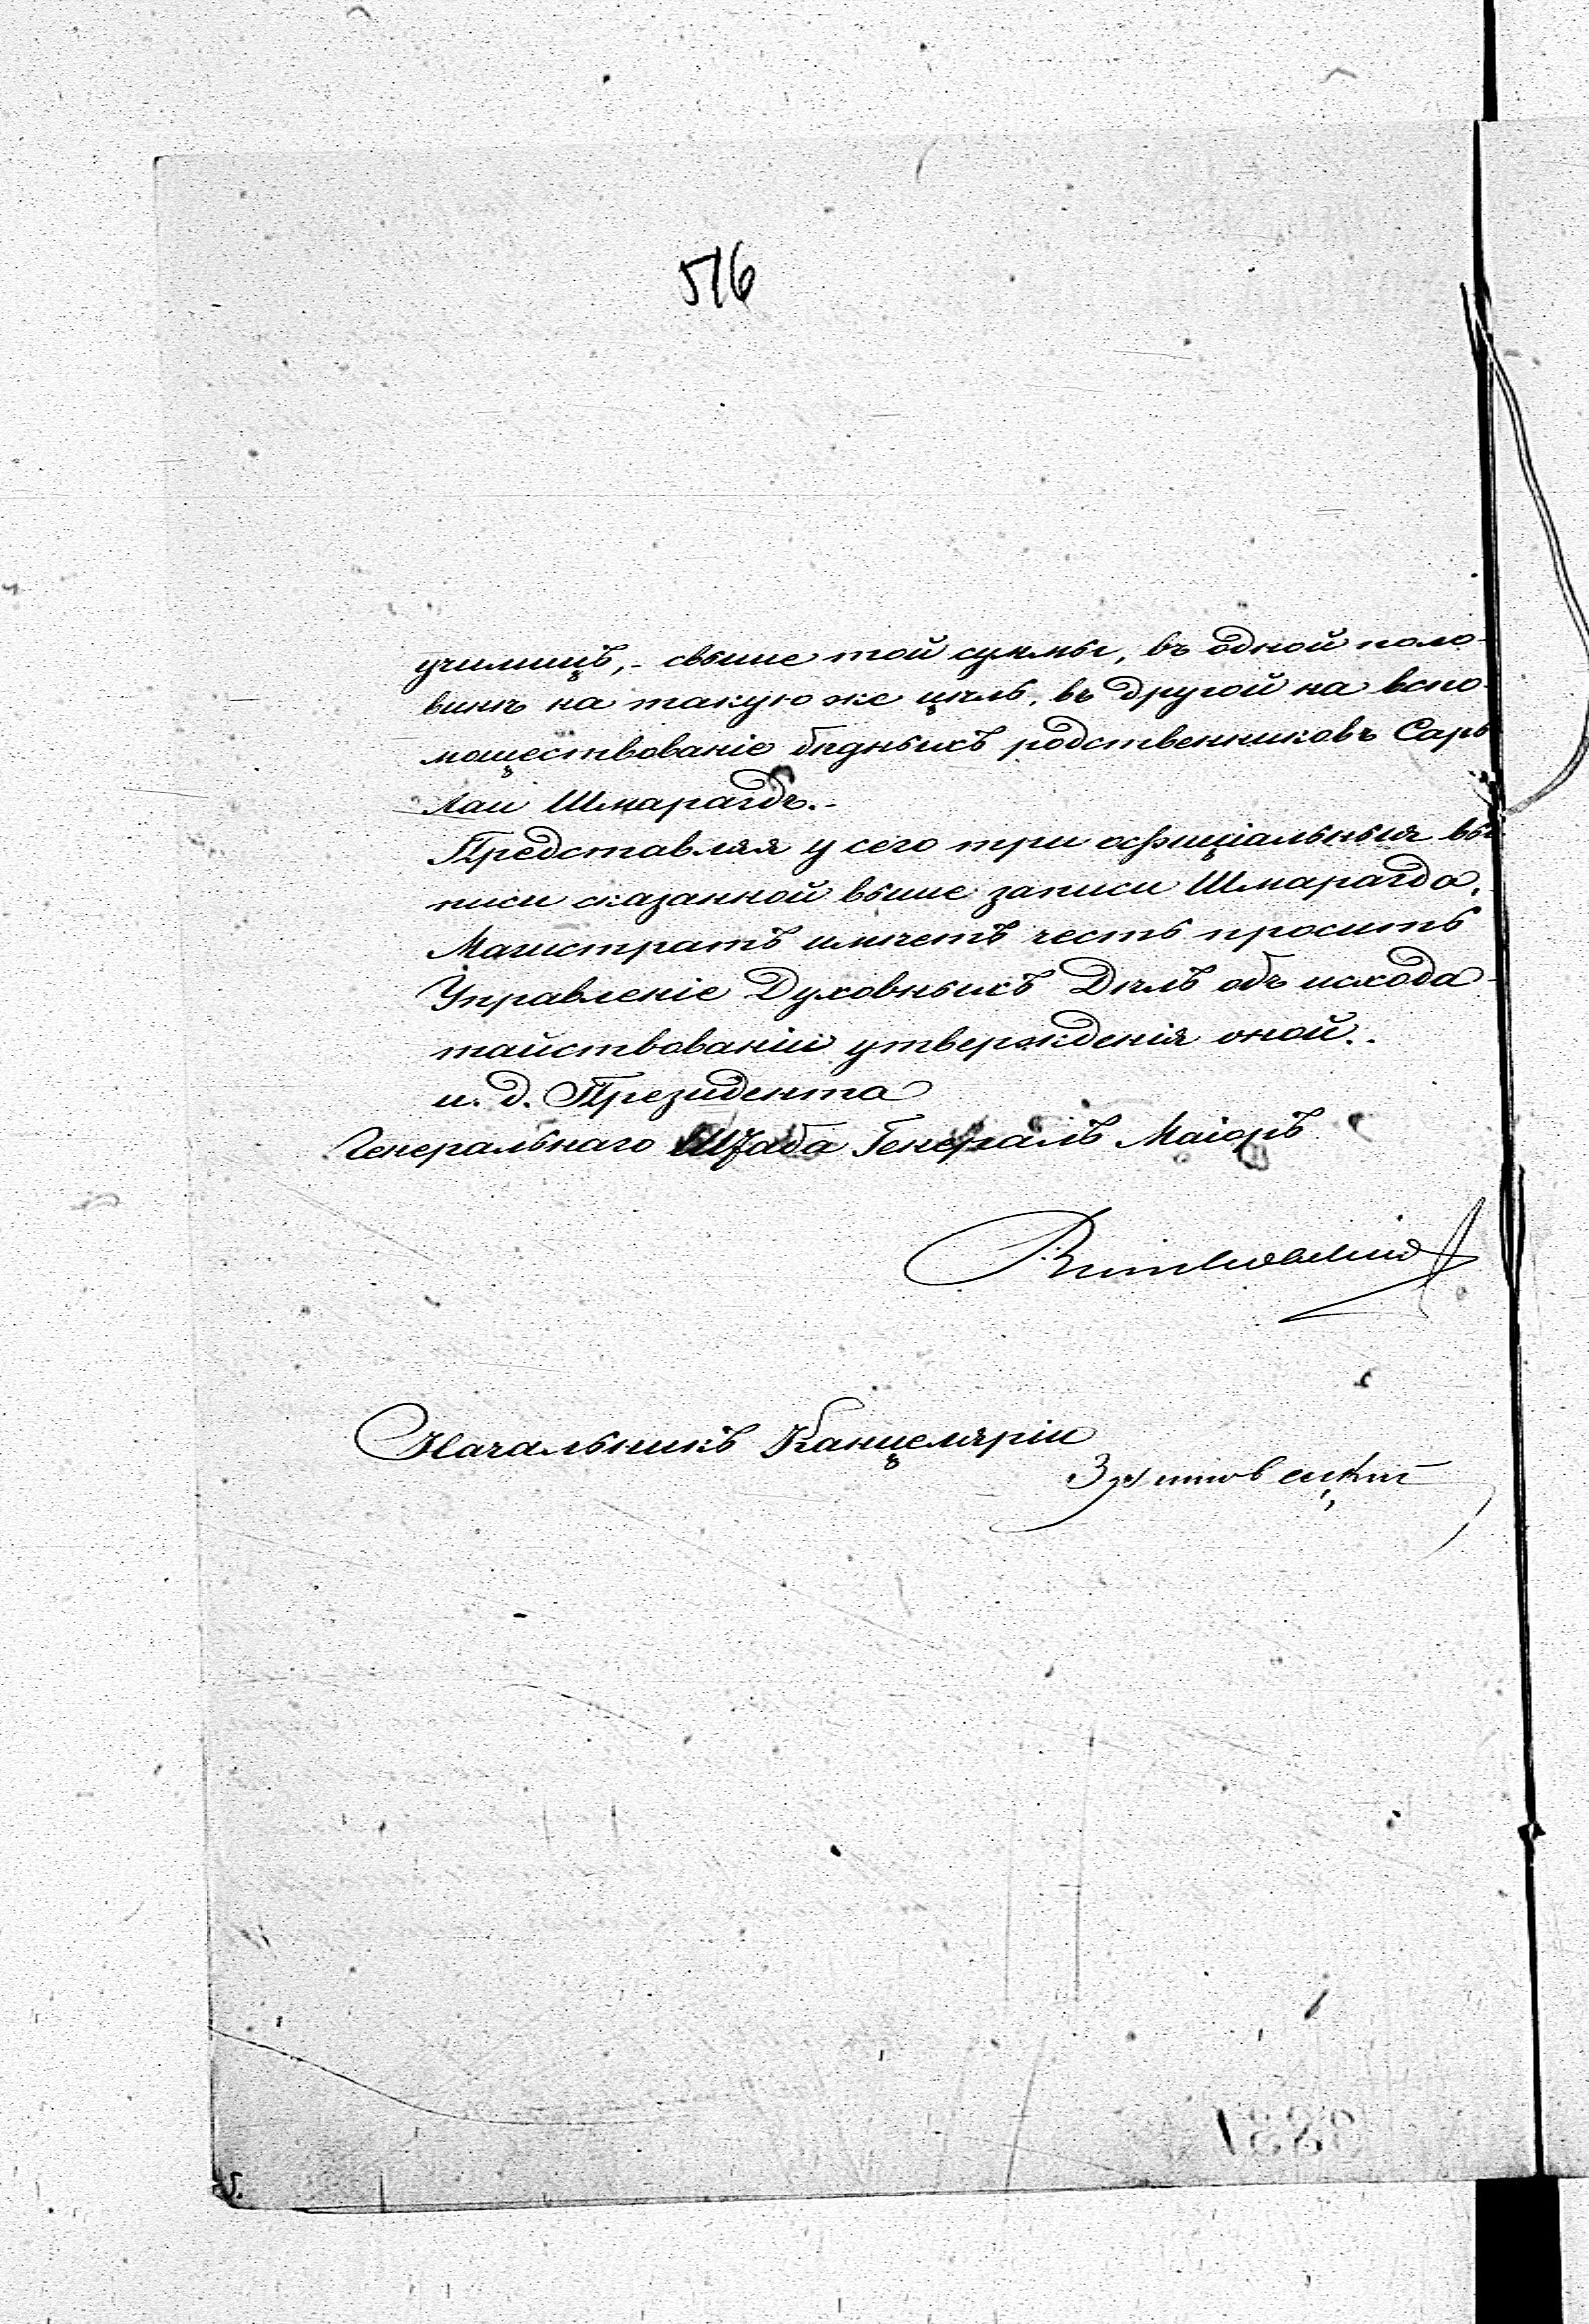 516
училищъ,- свыше той суммы, въ одной поло-
винѣ на такую же цѣль, въ другой на вспо-
мощствованіе бѣдныхъ родственниковъ Сары
Лаи Шмарагдъ.-
Представляя у сего три офиціальныя вы-
писи сказанной выше записи Шмарагда,
Магистратъ имѣетъ честь просить
Управленіе Духовныхъ Дѣлъ объ исхода-
тайствованіи утвержденія оной..
и. д. Президента
Генеральнаго Штаба Генералъ Маіоръ
Витковскій
Начальникъ Канцеляріи